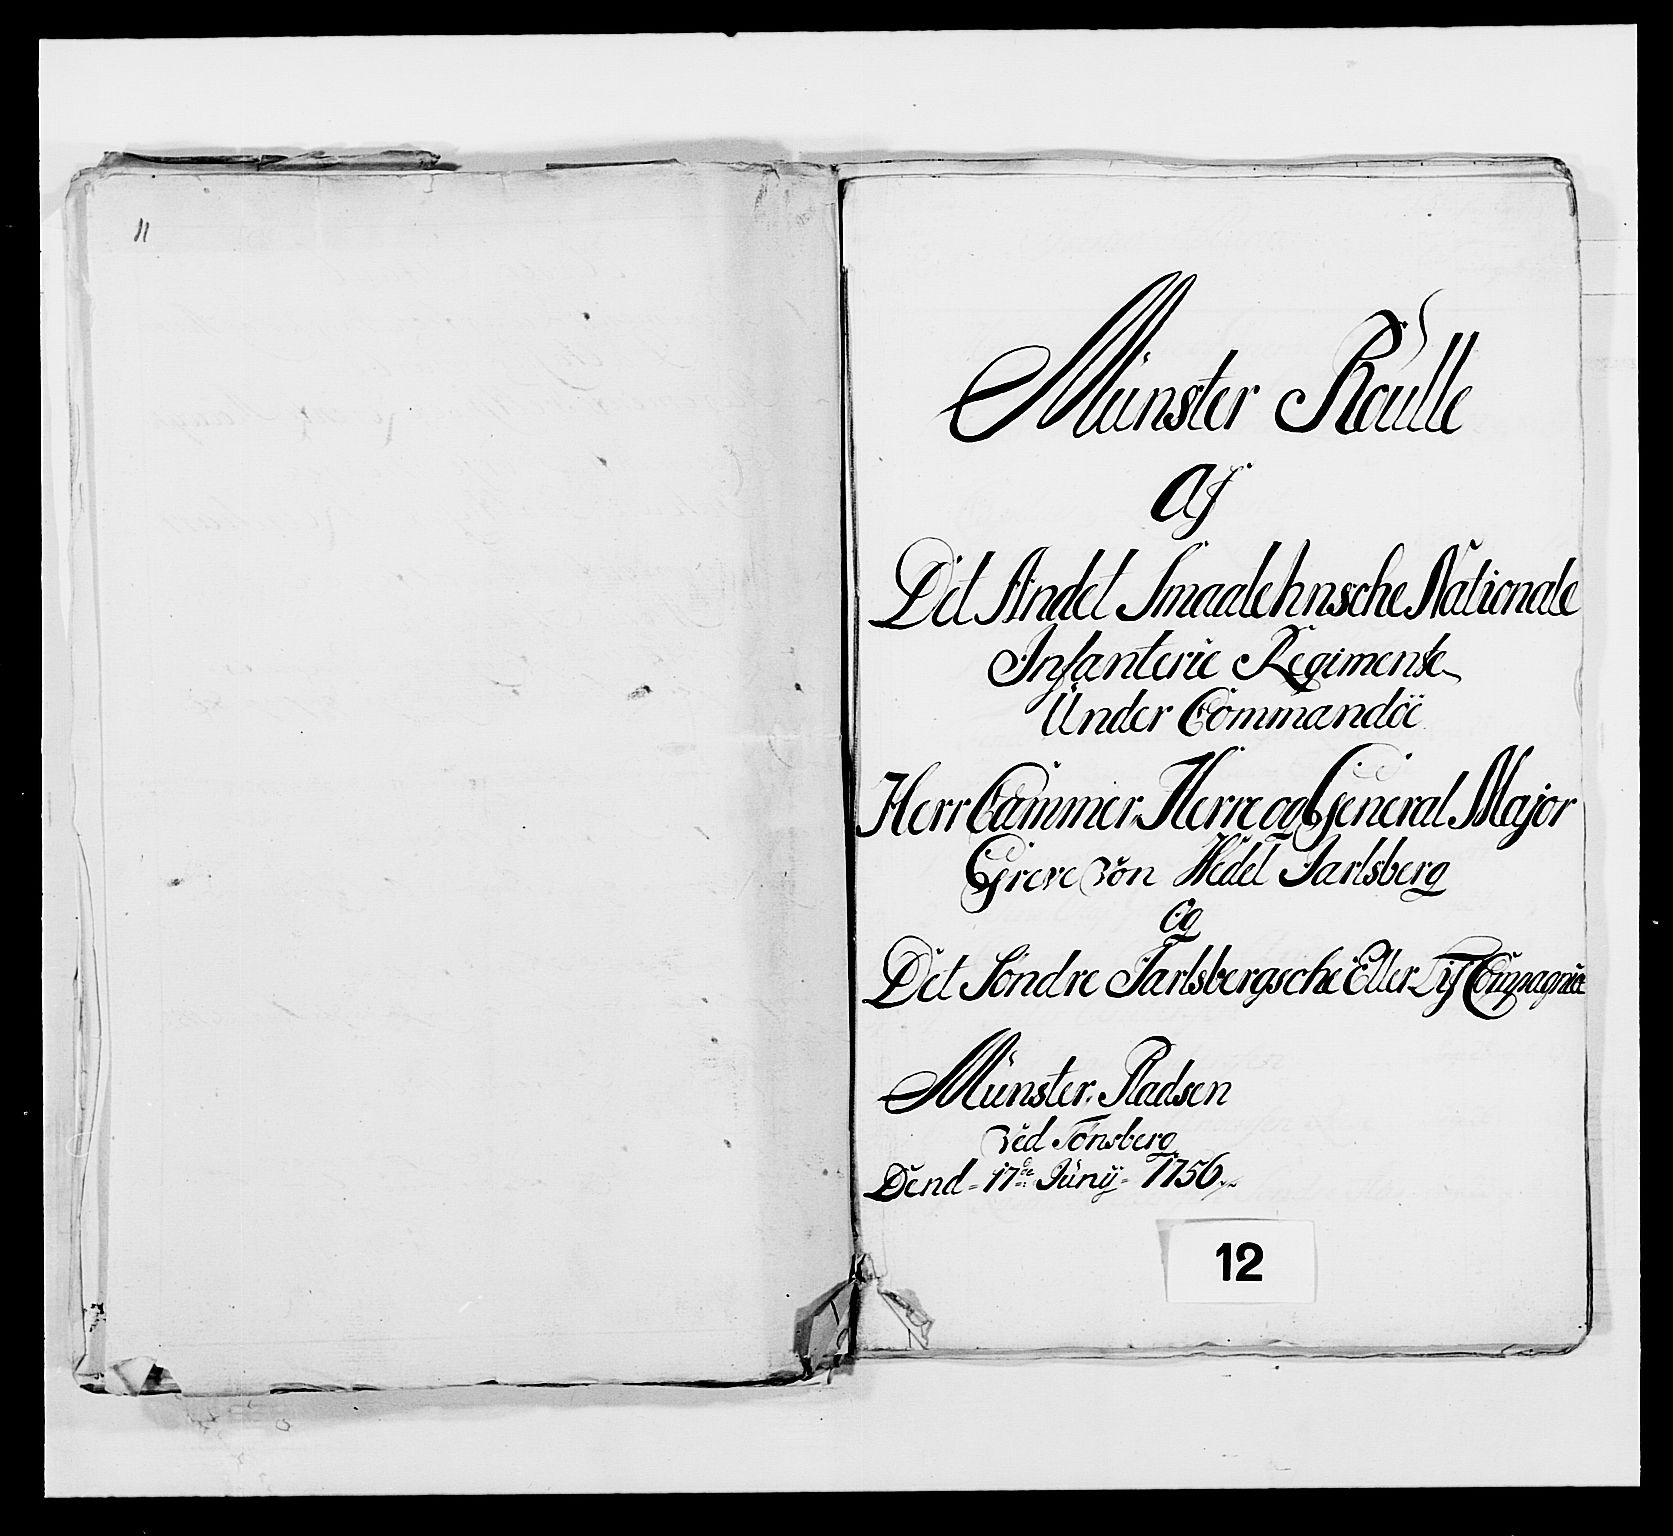 11
Münster Roulle
af
Det Andet Smaalehnsche Nationale
Infanterie Regimente
Under Commandöe
Herr Cammer Herre og General Major
Greve von Wedel Jarlsberg
og
Det Söndre Jarlsbergsche Eller Lif Compagnie
Münster Pladsen
ved Tönsberg
Dend 17de Junÿ 1756
12